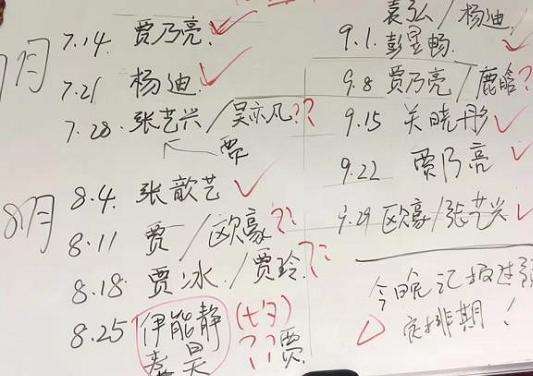 7月
7.14. 贾乃亮
7.21 杨迪
7.28. 张艺兴/吴亦凡??
贾
8月
8.4. 张歆艺
8.11 贾/欧豪??
8.18. 贾冰/贾玲??
8.25 伊能静 (七夕)
秦昊 ??贾
袁弘/杨迪
9.1. 彭昱畅
9.8 贾乃亮/鹿晗?
9.15 关晓彤
9.22 贾乃亮
9.29 欧豪/张艺兴
今晚汇报过
定排期!